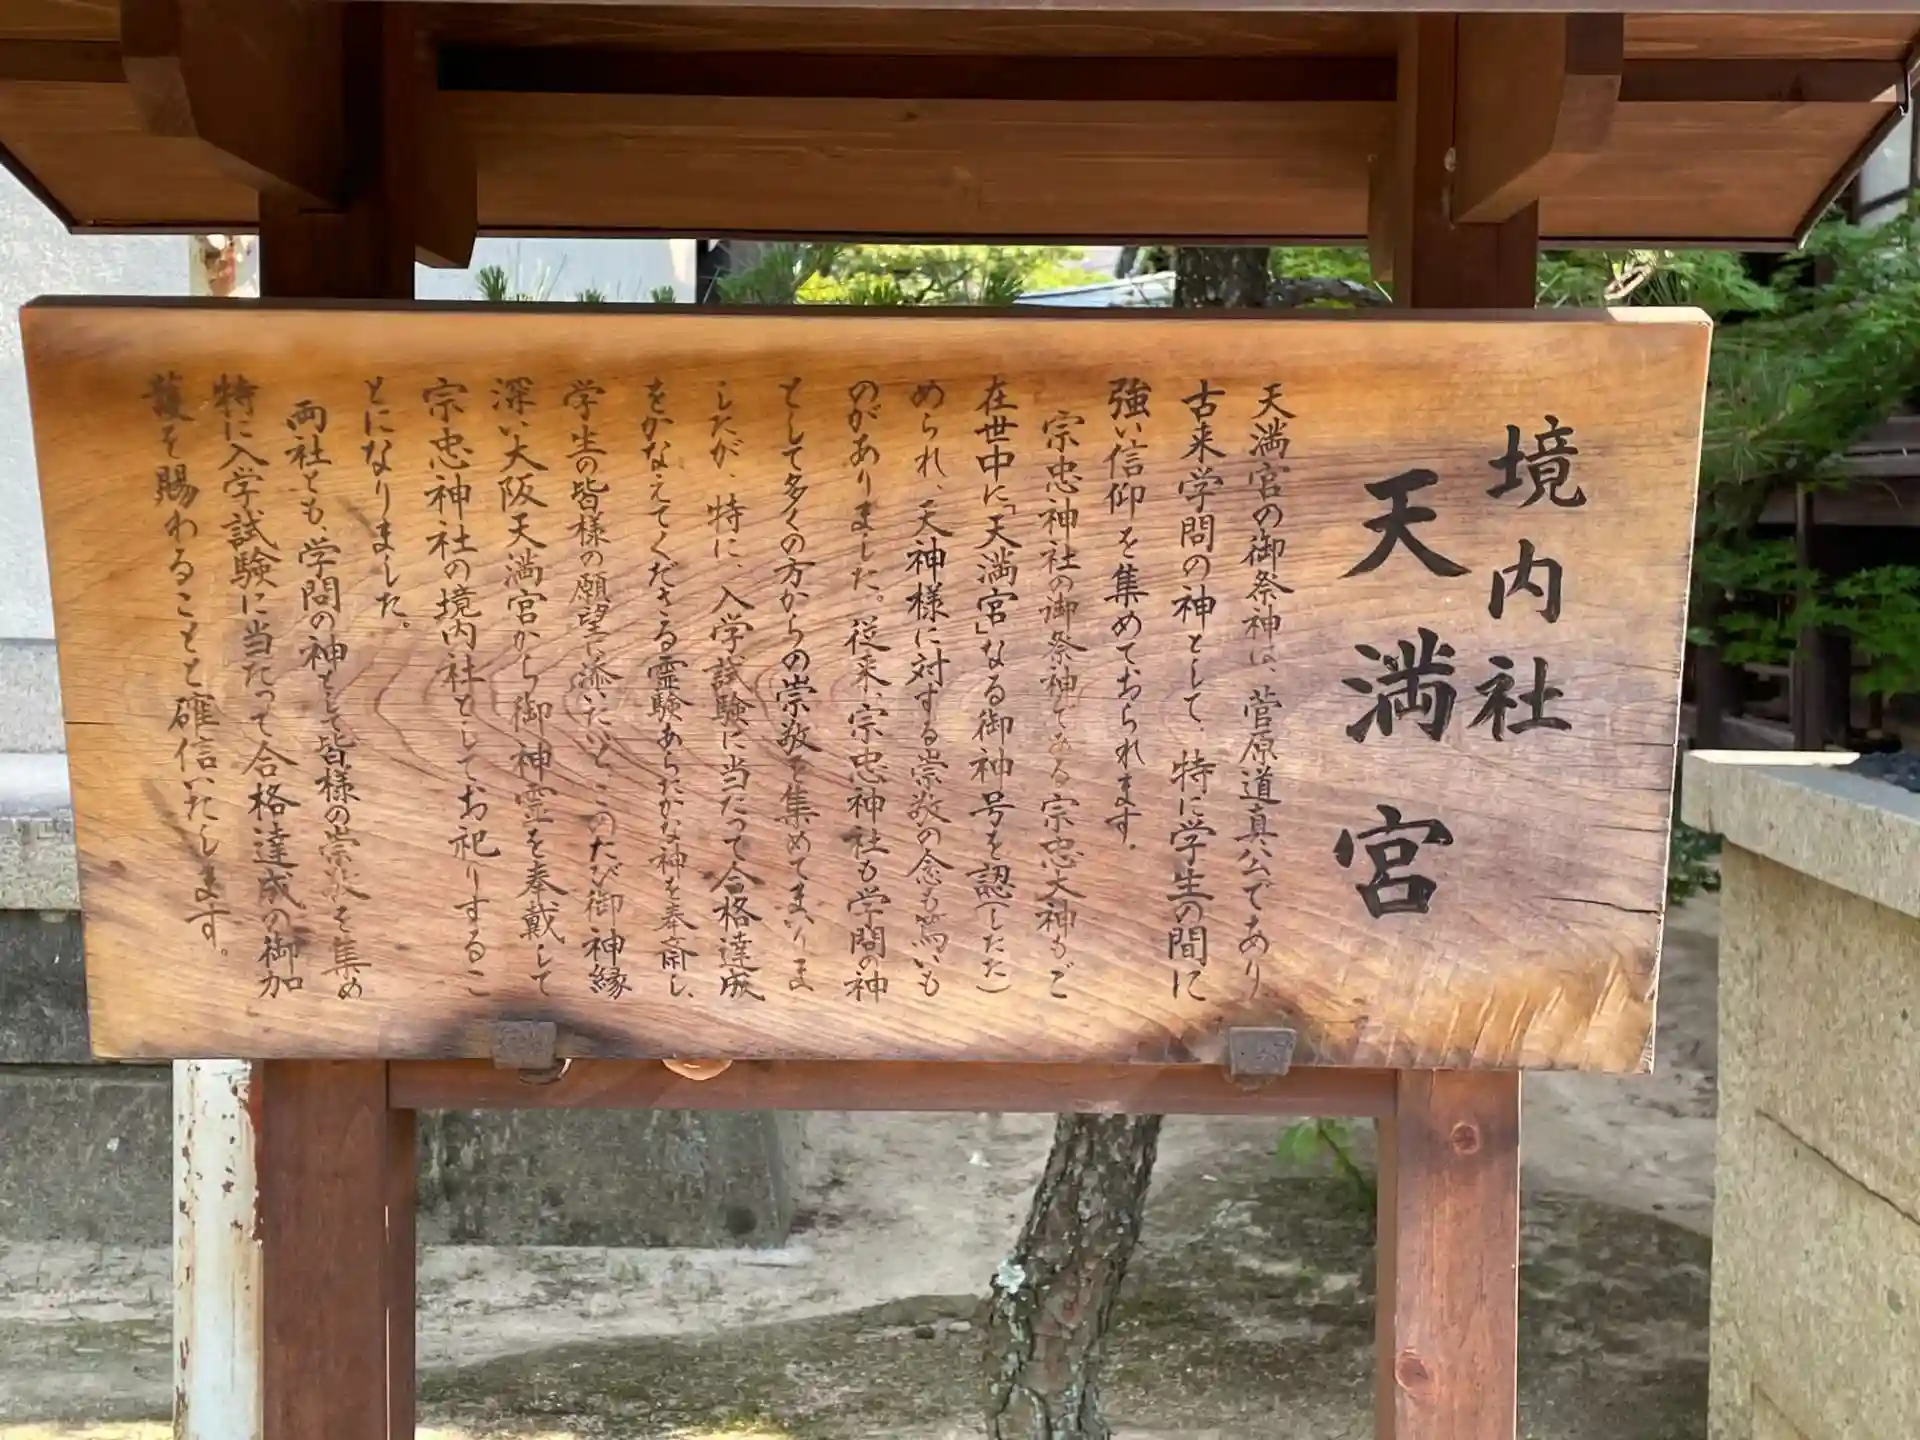 境内社
天満宮
天満宮の御祭神は、菅原道真公であり
古来学問の神として、特に学生の間に
強い信仰を集めておられます。
宗忠神社の御祭神である宗忠大神もご
在世中に「天満宮」なる御神号を認(したた)
められ、天神様に対する崇敬の念も篤いも
のがありました。従来、宗忠神社も学問の神
として多くの方からの崇敬を集めてまいりま
したが、特に、入学試験に当たって合格達成
をかなえてくださる霊験あらたかな神を奉斎し、
学生の皆様の願望に添いたいと、このたび御神縁
深い大阪天満宮から御神霊を奉戴して
宗忠神社の境内社としてお祀りするこ
とになりました。
両社とも、学問の神として皆様の崇敬を集め
特に入学試験に当たって合格達成の御加
護を賜わることと確信いたします。